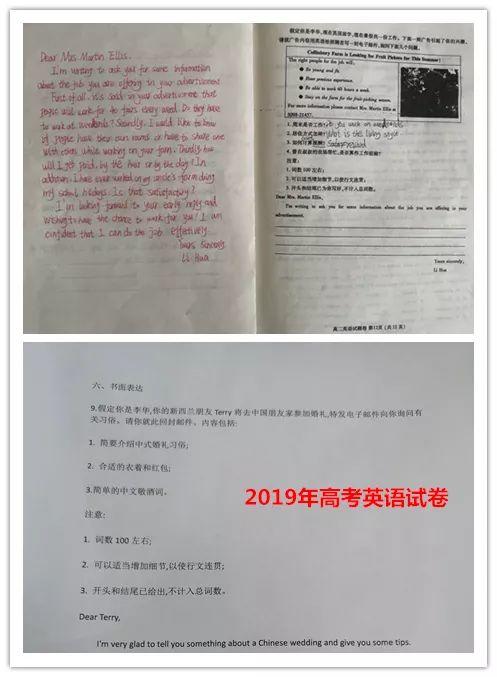 Dear Mrs Martin Ellis.
I'm writing to ask you for some information
about the job you are offering in your advertisement
First of all. it's said in your advertisement that
people will work for 40 hours every week. Do they have
to work at weekends? Secondly. I would like to know
if people have their own rooms or have to share one
with others while working on your farm. Thirdly how
will I get paid, by the hour or by the day? In
addition. I have ever worked on my uncle's farm during
my school holidays. Is that satisfactory?
I'm looking forward to your early reply and
wishing to have the chance to work for you! I am
confident that I can do the job effectively.
Yours Sincerely
Li Hua
假定你是李华,现在英国留学,现在暑假找一份工作。下面一则广告引起了你的兴趣,
请就广告内容用英语给招聘者写一封电子邮件,询问下面几个问题。
Collinbury Farm is Looking for Fruit Pickers for This Summer!
The right people for the job will:
Be young and fit.
Have previous experience.
Be able to work 40 hours a week.
Stay on the farm for the fruit-picking season.
For more information please contact Mrs. Martin Ellis at
1.周末是否工作? Do you work on weekends
2.居住方式怎样? What is the living style
3.如何计算报酬?
注意:
1. 词数 100 左右;
2. 可以适当增加细节,以使行文连贯;
3. 开头和结尾已为你写好,不计入总词数。
Dear Mrs. Martin Ellis,
I'm writing to ask you for some information about the job you are offering in your
advertisement.
Yours sincerely,
Li Hua
高二英语试题卷 第12页 (共12页)
六、书面表达
9.假定你是李华,你的新西兰朋友 Terry 将去中国朋友家参加婚礼,特发电子邮件向你询问有
关习俗。请你就此回封邮件。内容包括:
1. 简要介绍中式婚礼习俗;
2. 合适的衣着和红包;
3.简单的中文敬酒词。
2019年高考英语试卷
注意:
1. 词数 100 左右;
2. 可以适当增加细节,以使行文连贯;
3. 开头和结尾已给出,不计入总词数。
Dear Terry,
I'm very glad to tell you something about a Chinese wedding and give you some tips.